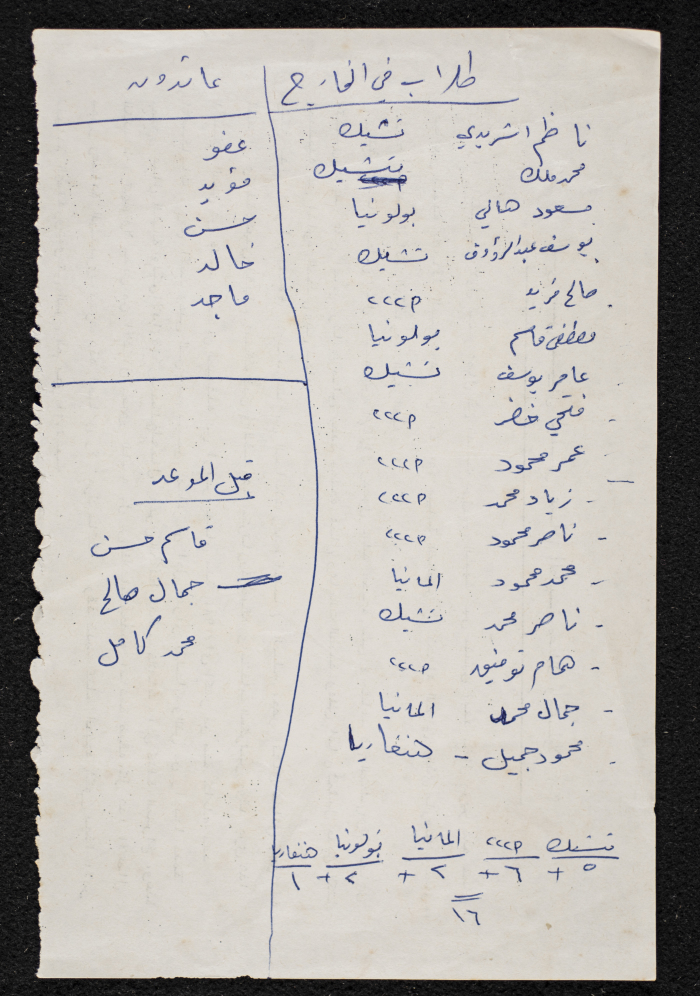 طلاب في الخارج
ناظم اشريدي تشيك
محمد ملك تشيك
مسعود هاني بولونيا
يوسف عبدالرؤوف تشيك
صالح فريد CCCP
مصطفى قاسم بولونيا
عامر يوسف تشيك
- فتحي خضر CCCP
- عمر محمود CCCP
- زياد محمد CCCP
- ناصر محمود CCCP
- محمد محمود المانيا
- ناصر محمد تشيك
- همام توفيق CCCP
- جمال محمد المانيا
- محمود جميل - هنغاريا
تشيك CCCP المانيا بولونيا هنغاريا
٥ + ٦ + ٢ + ٢ + ١
١٦
عائدون
عفو
مؤيد
حسن
خالد
ماجد
قبل الموعد
قاسم حسن
جمال صالح
محمد كامل